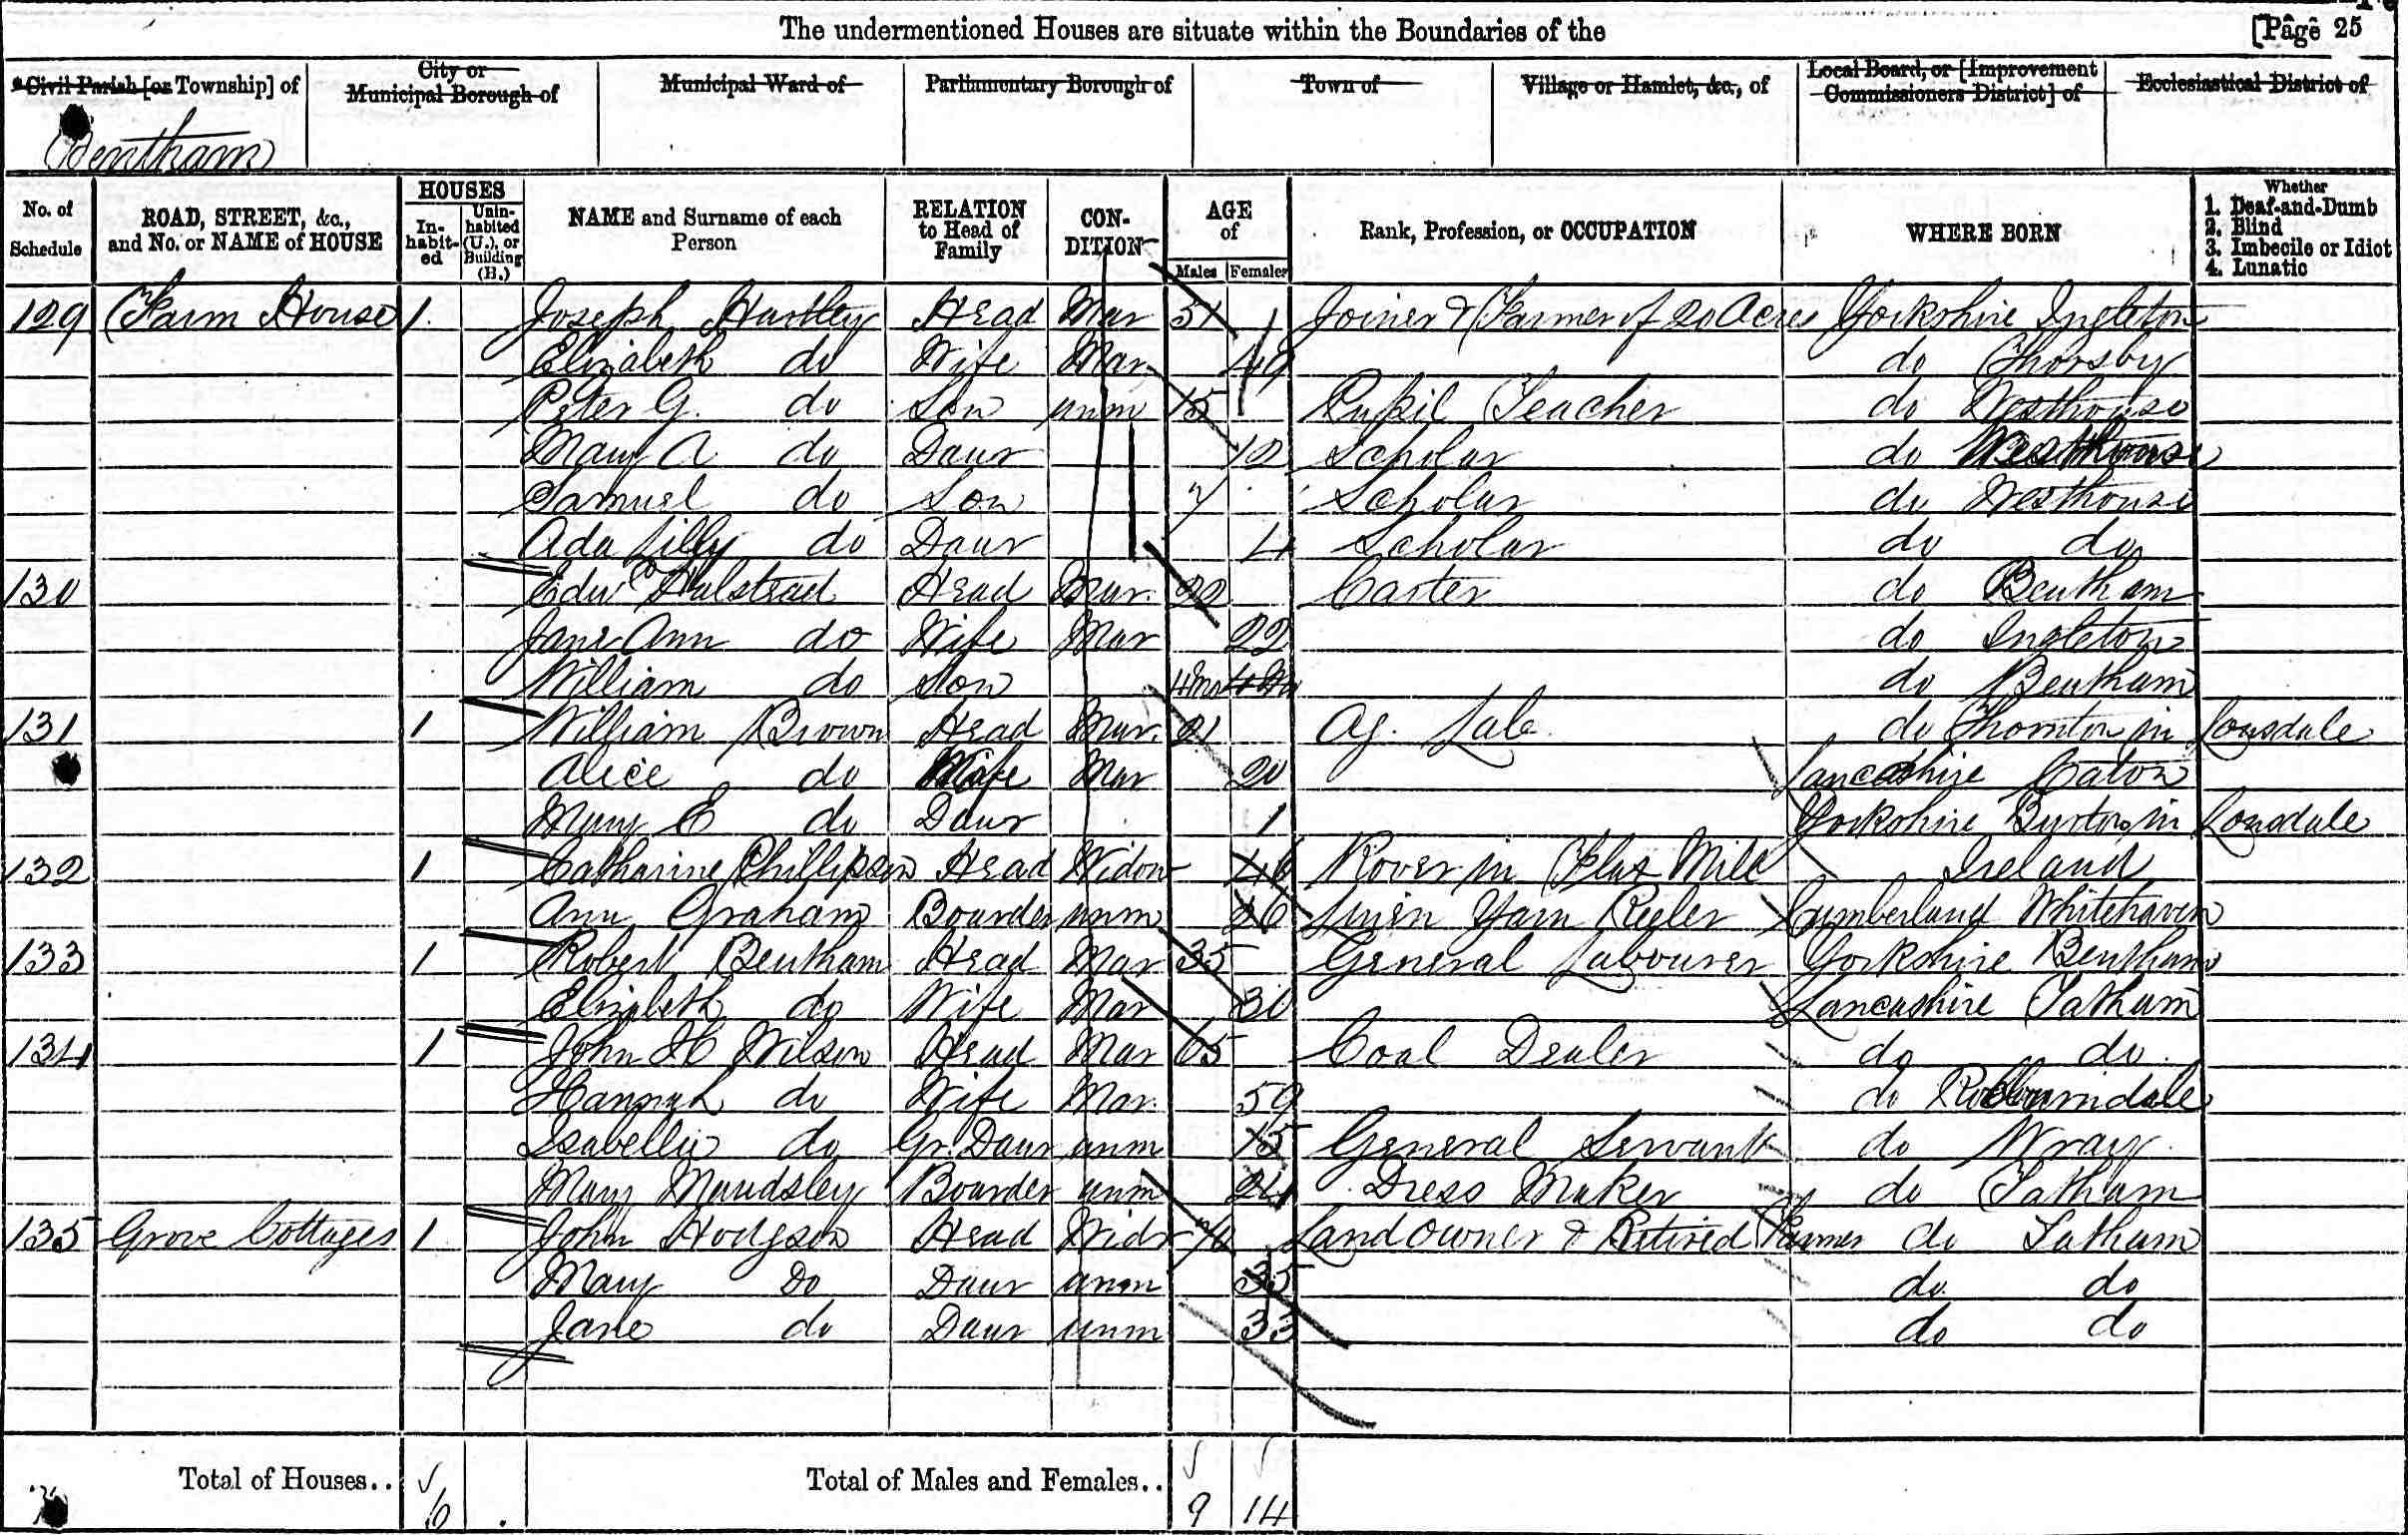 The undermentioned Houses are situate within the Boundaries of the [Page 25
Civil Parish [or Township] of City or Municipal Borough of Municipal Ward of Parliamentary Borough of Town of Village or Hamlet, &c., of Local Board, or [Improvement Commissioners District] of Ecclesiastical District of
Bentham
No. of Schedule ROAD, STREET, &c., and No. or NAME of HOUSE HOUSES Inhabited Uninhabited (U.), or Building (B.) NAME and Surname of each Person RELATION to Head of Family CONDITION AGE of Males Females Rank, Profession, or OCCUPATION WHERE BORN Whether 1. Deaf-and-Dumb 2. Blind 3. Imbecile or Idiot 4. Lunatic
129 Farm House 1 Joseph Hartley Head Mar 51 Joiner & Farmer of 20 Acres Yorkshire Ingleton
Elizabeth do Wife Mar 49 do Thorsby
Peter G. do Son unm 15 Pupil Teacher do Westhouse
Mary A do Daur 12 Scholar do Westhouse
Samuel do Son 7 Scholar do Westhouse
Ada Lilly do Daur 4 Scholar do do
130 Edwd Halstead Head Mar. 22 Carter do Bentham
Jane Ann do Wife Mar 22 do Ingleton
William do Son 4 Mo do Bentham
131 1 William Brown Head Mar. 21 Ag. Lab. do Thornton in Lonsdale
Alice do Wife Mar 20 Lancashire Caton
Mary E do Daur 1 Yorkshire Burton in Lonsdale
132 1 Catharine Phillipson Head Widow 46 Rover in Flax Mill Ireland
Ann Graham Boarder unm 26 Linen Yarn Reeler Cumberland Whitehaven
133 1 Robert Bentham Head Mar 35 General Labourer Yorkshire Bentham
Elizabeth do Wife Mar 30 Lancashire Tatham
134 1 John H Wilson Head Mar 65 Coal Dealer do do
Hannah do Wife Mar. 59 do Roeburndale
Isabella do Gr. Daur unm 15 General Servant do Wray
Mary Maudsley Boarder unm 24 Dress Maker do Tatham
135 Grove Cottages 1 John Hodgson Head Widr 70 Land Owner & Retired Farmer do Tatham
Mary Do Daur unm 35 do do
Jane do Daur unm 33 do do
Total of Houses.. 6 Total of Males and Females.. 9 14